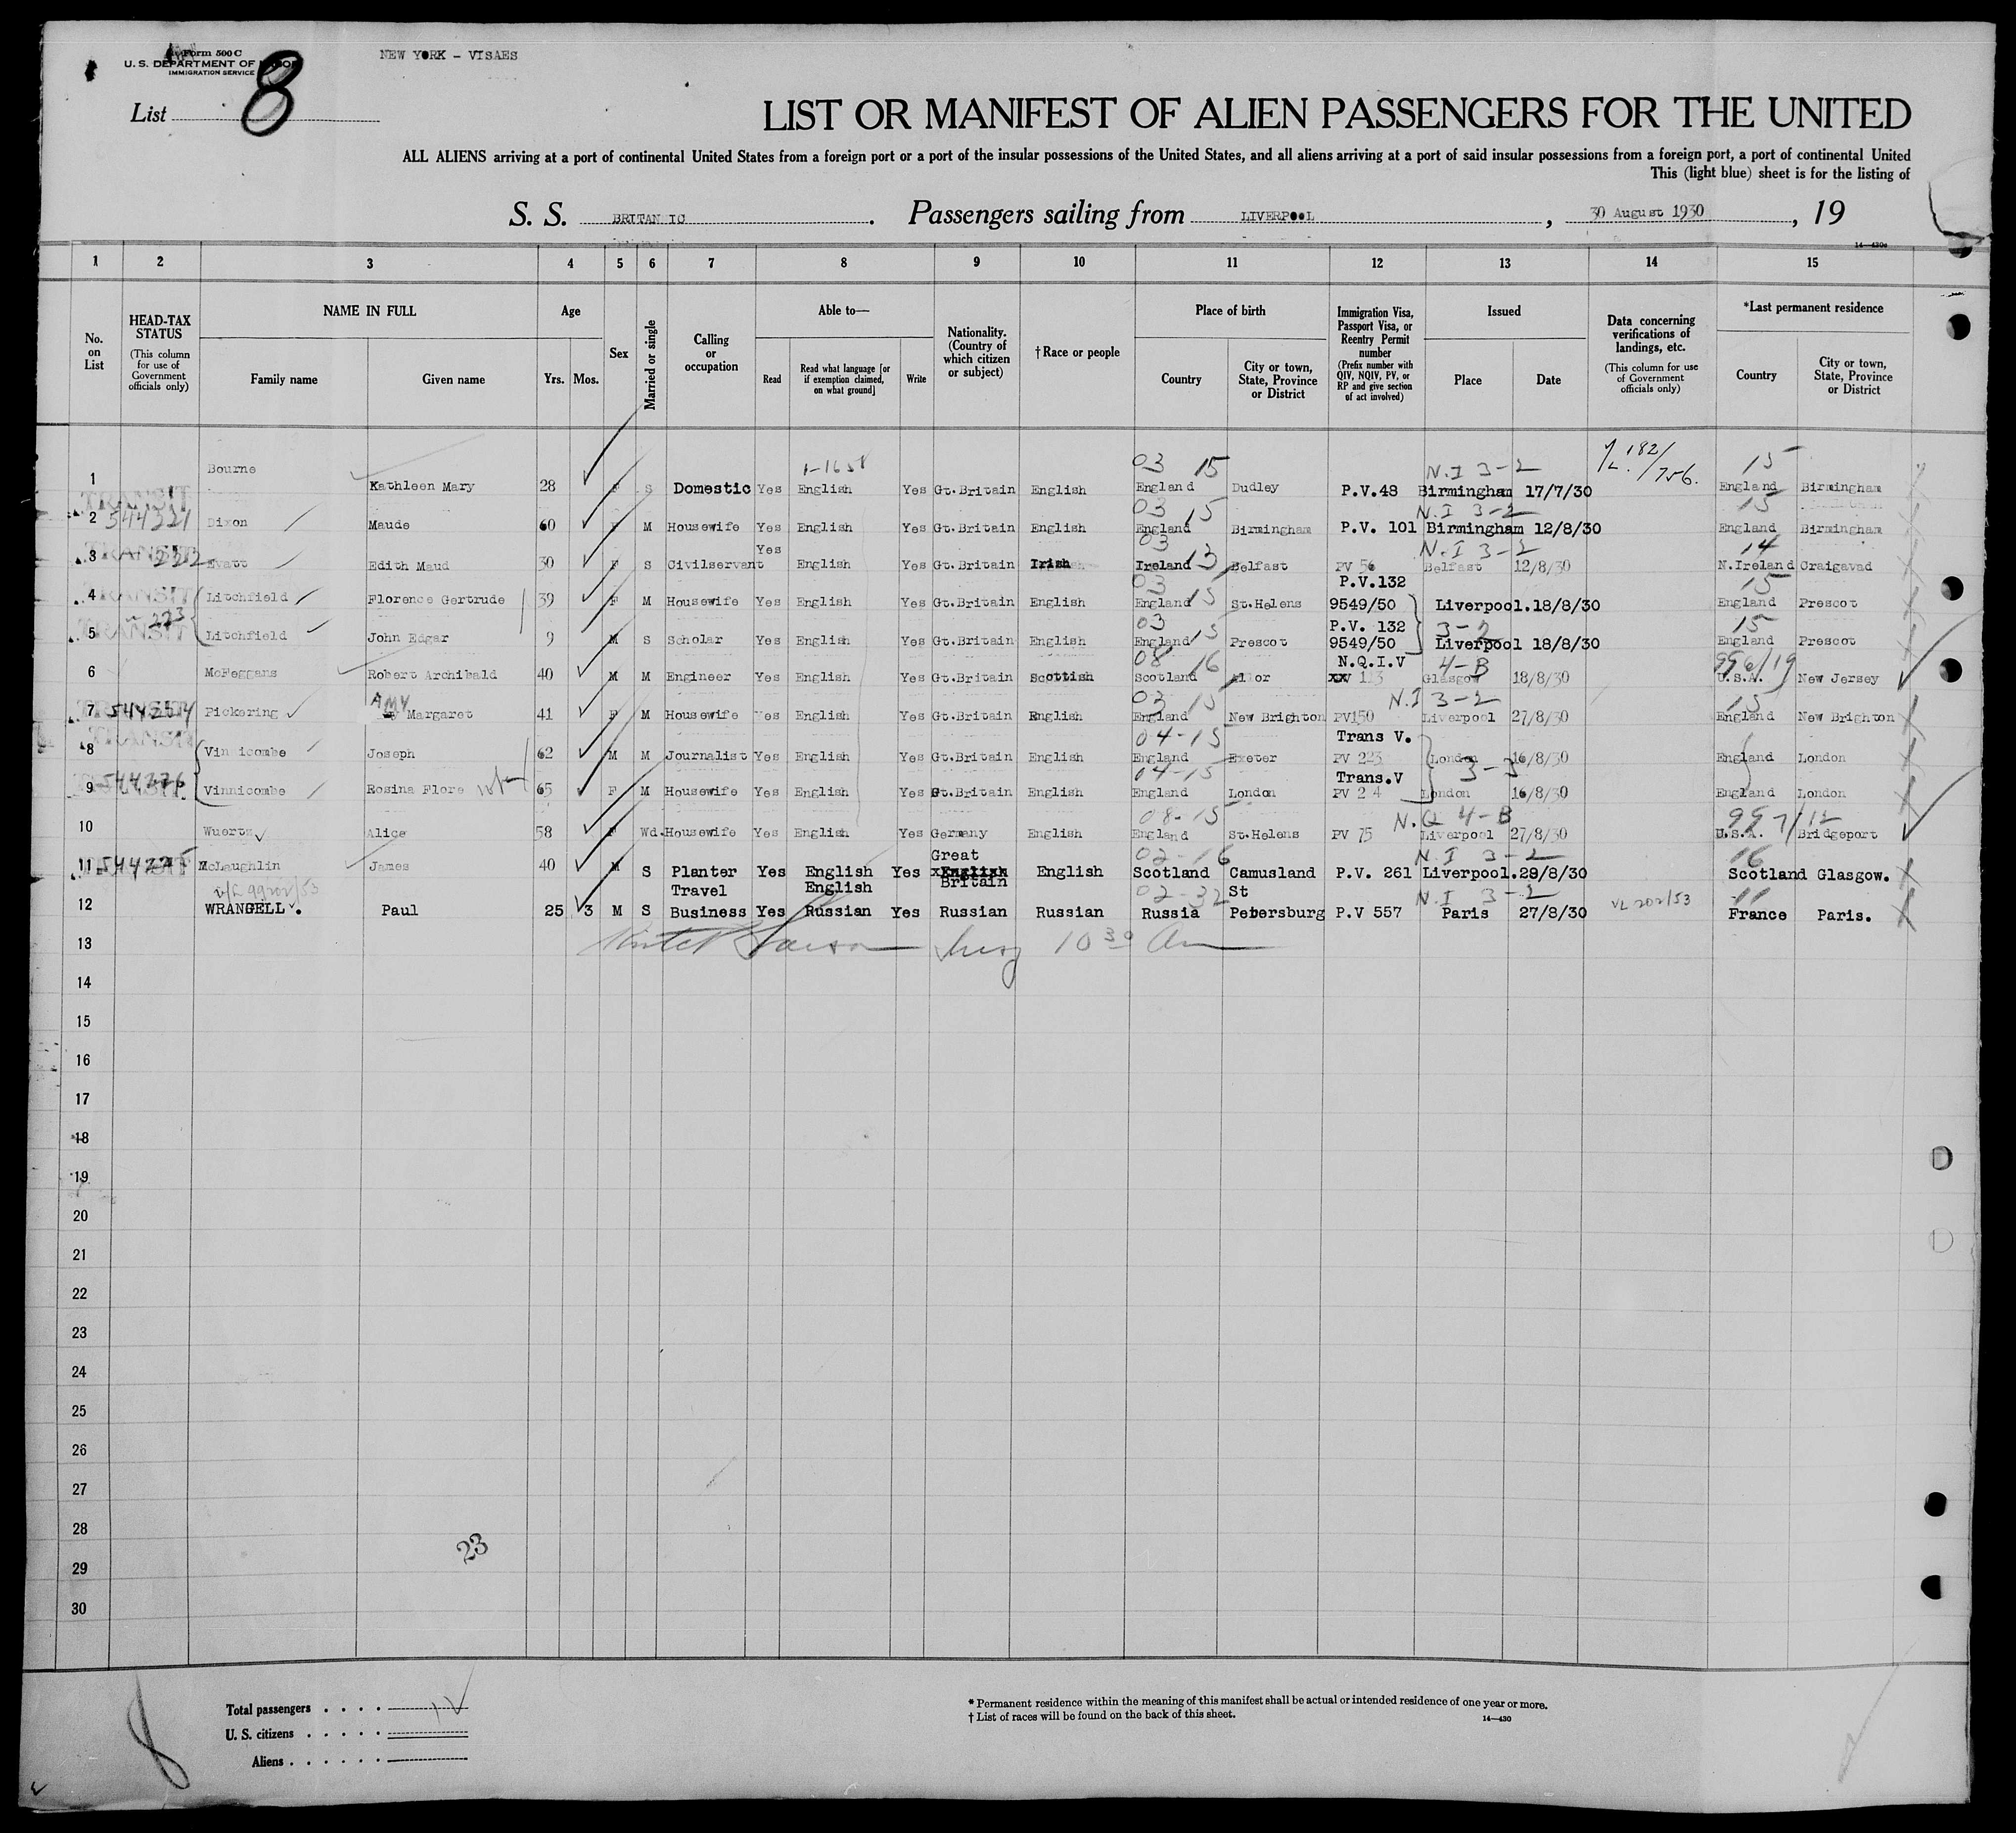 Form 500 C
U. S. DEPARTMENT OF LABOR
IMMIGRATION SERVICE
NEW YORK - VISAES
List 8
LIST OR MANIFEST OF ALIEN PASSENGERS FOR THE UNITED
ALL ALIENS arriving at a port of continental United States from a foreign port or a port of the insular possessions of the United States, and all aliens arriving at a port of said insular possessions from a foreign port, a port of continental United
This (light blue) sheet is for the listing of
S. S. BRITANIC. Passengers sailing from LIVERPOOL, 30 August 1930, 19
1 2 3 4 5 6 7 8 9 10 11 12 13 14 15
No. on List
HEAD-TAX STATUS (This column for use of Government officials only)
NAME IN FULL Family name Given name
Age Yrs. Mos.
Sex
Married or single
Calling or occupation
Able to— Read Read what language [or if exemption claimed, on what ground] Write
Nationality. (Country of which citizen or subject)
† Race or people
Place of birth Country City or town, State, Province or District
Immigration Visa, Passport Visa, or Reentry Permit number (Prefix number with QIV, NQIV, PV, or RP and give section of act involved)
Issued Place Date
Data concerning verifications of landings, etc. (This column for use of Government officials only)
*Last permanent residence Country City or town, State, Province or District
1-1658 03 15 N.I 3-2 182/756. 15
1 Bourne Kathleen Mary 28 F S Domestic Yes English Yes Gt.Britain English England Dudley P.V.48 Birmingham 17/7/30 England Birmingham
TRANSIT 03 15 N.I 3-2 15
2 544221 Dixon Maude 60 F M Housewife Yes English Yes Gt.Britain English England Birmingham P.V. 101 Birmingham 12/8/30 England Birmingham
TRANSIT 03 13 N.I 3-2 14
3 222 Evatt Edith Maud 30 F S Civilservant Yes English Yes Gt.Britain Irish Ireland Belfast PV 56 Belfast 12/8/30 N.Ireland Craigavad
TRANSIT 03 15 P.V.132 15
4 Litchfield Florence Gertrude 39 F M Housewife Yes English Yes Gt.Britain English England St.Helens 9549/50 Liverpool.18/8/30 England Prescot
TRANSIT 223 03 15 P.V. 132 3-2 15
5 Litchfield John Edgar 9 M S Scholar Yes English Yes Gt.Britain English England Prescot 9549/50 Liverpool 18/8/30 England Prescot
08 16 N.Q.I.V 4-B 996/19
6 McFeggans Robert Archibald 40 M M Engineer Yes English Yes Gt.Britain Scottish Scotland xx 113 Glasgow 18/8/30 U.S.A. New Jersey
TRANSIT 03 15 N.I 3-2 15
7 Pickering AMY Margaret 41 F M Housewife Yes English Yes Gt.Britain English England New Brighton PV150 Liverpool 27/8/30 England New Brighton
TRANSIT 04-15 Trans V.
8 Vinnicombe Joseph 62 M M Journalist Yes English Yes Gt.Britain English England Exeter PV 223 London 16/8/30 England London
04-15 Trans.V 3-3
9 544226 Vinnicombe Rosina Flore 65 F M Housewife Yes English Yes Gt.Britain English England London PV 2 4 London 16/8/30 England London
08-15 N.Q 4-B 997/12
10 Wuertz Alice 58 F Wd. Housewife Yes English Yes Germany English England St.Helens PV 75 Liverpool 27/8/30 U.S.A. Bridgeport
02-16 N.I 3-2 16
11 544225 McLaughlin James 40 M S Planter Yes English Yes Great Britain English Scotland Camusland P.V. 261 Liverpool.29/8/30 Scotland Glasgow.
02-32 N.I 3-2 VL 202/53 11
12 WRANGELL. Paul 25 3 M S Travel Business Yes English Russian Yes Russian Russian Russia St Petersburg P.V 557 Paris 27/8/30 France Paris.
13 10 30 Am
14
15
16
17
18
19
20
21
22
23
24
25
26
27
28
29
30
23
Total passengers . . . . 12
U. S. citizens . . . . .
Aliens . . . . . .
8
* Permanent residence within the meaning of this manifest shall be actual or intended residence of one year or more.
† List of races will be found on the back of this sheet.
14—430